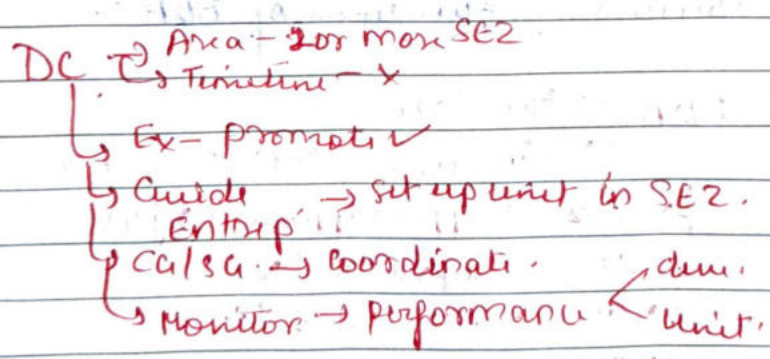 DC → Area - 1 or more SEZ
→ Timeline - x
→ Ex - promoti ✓
→ Guide Entrep → set up unit in SEZ.
→ CG/SG. → coordinati.
→ Monitor → performanu < deve. unit.